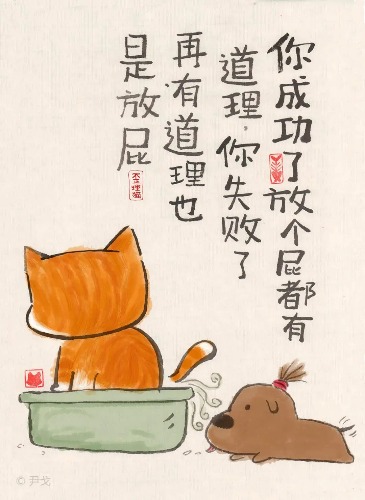 你成功了放个屁都有
道理，你失败了
再有道理也
是放屁
© 尹戈